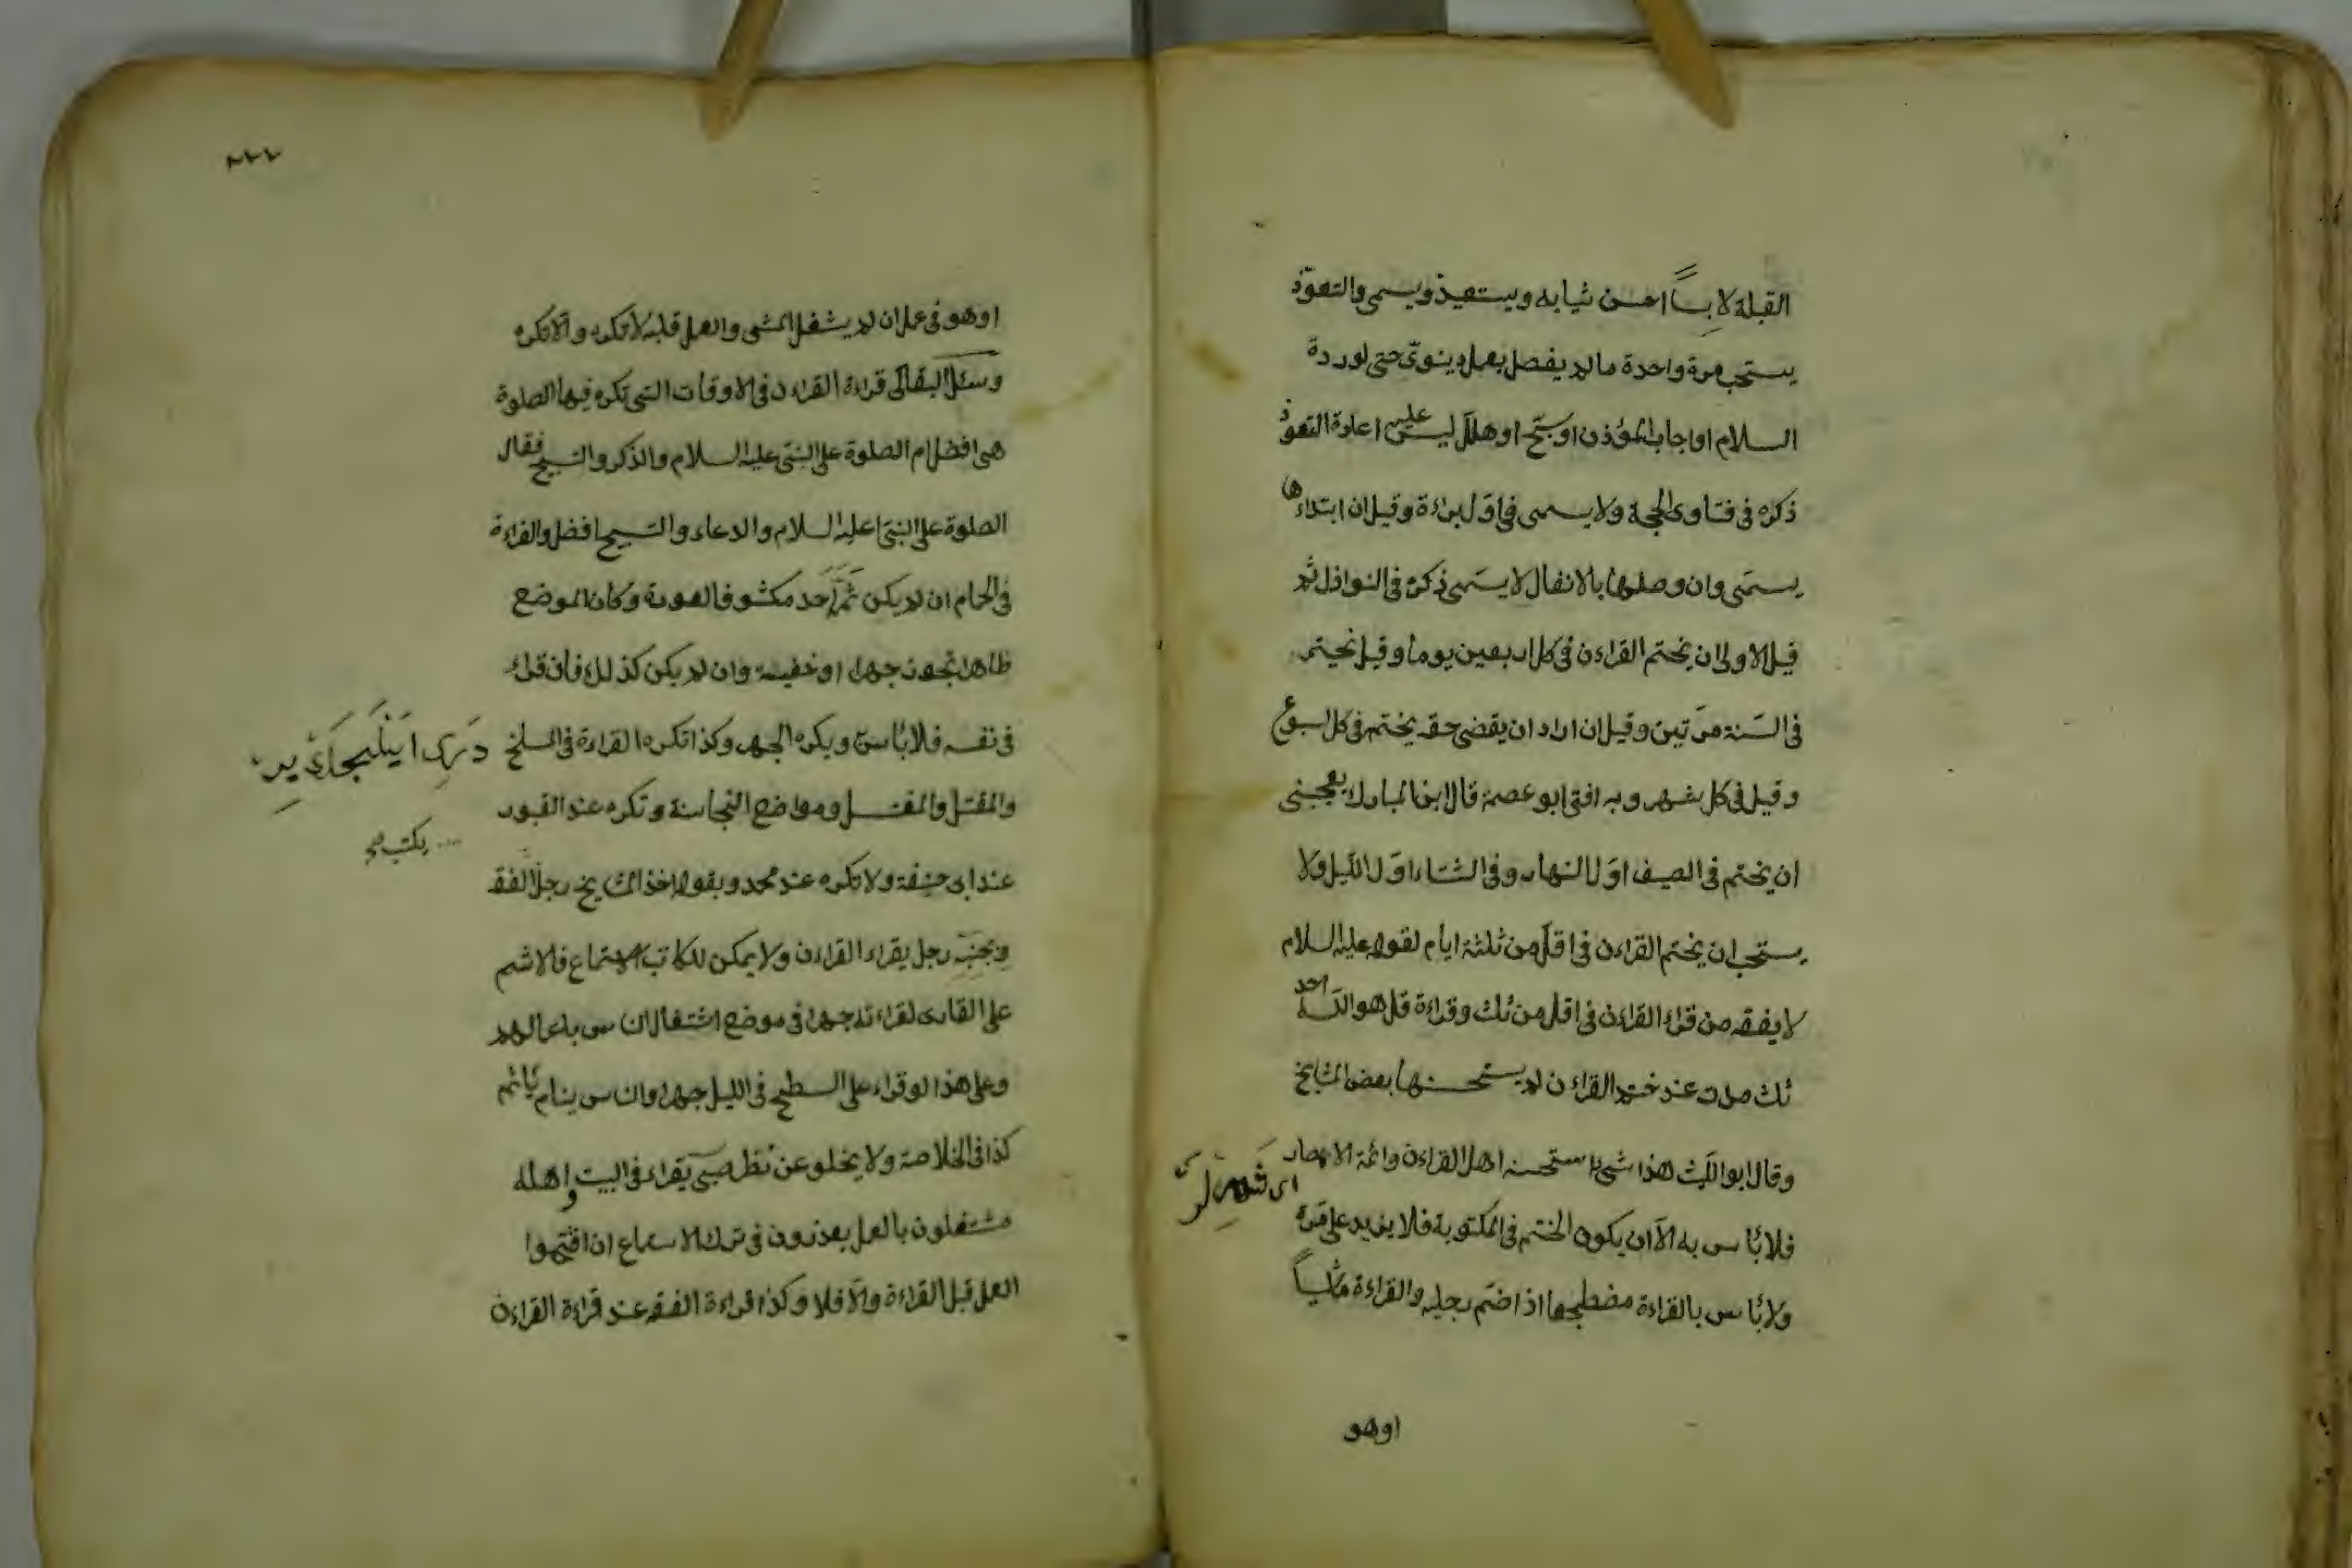 القبلة لابساً احسن ثيابه ويستعيذ ويسمى والتعوّذ
يستحب مرة واحدة ما لم يفصل بعمل دينوىّ حتى لو ردة
السلام او اجاب المؤذن او سبّح او هلّل ليس عليه اعادة التعوذ
ذكره فى فتاوى الحجة ولا يسمى فى اوّل براءة وقيل ان ابتداءها
يسمّى وان وصلها بالانفال لا يسمّى ذكره فى النوازل ثم
قيل الاولى ان يختم القراءن فى كل اربعين يوما وقيل يختم
فى السّنة مرّتين وقيل ان اراد ان يقضى حقه يختم فى كل اسبوع
وقيل فى كل شهر وبه افتى ابو عصمة قال ابن المبارك يعجبنى
ان يختم فى الصيف اوّل النهار وفى الشتاء اوّل الليل ولا
يستحب ان يختم القراءن فى اقلّ من ثلثة ايام لقوله عليه السلام
لا يفقه من قراء القراءن فى اقل من ثلث وقراءة قل هو الله احد
ثلث مرات عند ختم القراءن لم يستحسنها بعض المشايخ
وقال ابو الليث هذا شئ استحسنه اهل القراءن وائمة الامصار
اى شهرلر
فلا بأس به الاّ ان يكون الختم فى المكتوبة فلا يزيد على مرة
ولا بأس بالقراءة مضطجعا اذا ضمّ رجليه والقراءة ماشياً
اوهو
٢٢٢
او هو فى عمل ان لم يشغل المشى والعمل قلبه لا تكره والّا تكره
وسئل البقالى قراءة القراءن فى الاوقات التى تكره فيها الصلوة
هى افضل ام الصلوة على النبىّ عليه السلام والذكر والتسبيح فقال
الصلوة على النبىّ عليه السلام والدعاء والتسبيح افضل والقراءة
فى الحمام ان لم يكن ثمّ احد مكشوف العورة وكان الموضع
طاهرا تجوز جهرا او خفية وان لم يكن كذلك فان قراء
فى نفسه فلا بأس ويكره الجهر وكذا تكره القراءة فى المسلخ
والمقتل والمغتسل ومواضع النجاسة وتكره عند القبور
عند ابى حنيفة ولا تكره عند محمد وبقوله اخذ المشايخ رجل الفقه
وبجنبه رجل يقراء القراءن ولا يمكن للكاتب الاستماع فالاثم
يكتب
على القارى لقراءته جهرا فى موضع اشتغال الناس باعمالهم
وعلى هذا لو قراء على السطح فى الليل جهرا والناس ينام يأثم
كذا فى الخلاصة ولا يخلو عن نظر صبىّ يقراء فى البيت واهله
مشتغلون بالعمل يعذرون فى ترك الاستماع ان افتتحوا
العمل قبل القراءة والّا فلا وكذا قراءة الفقه عند قراءة القراءن